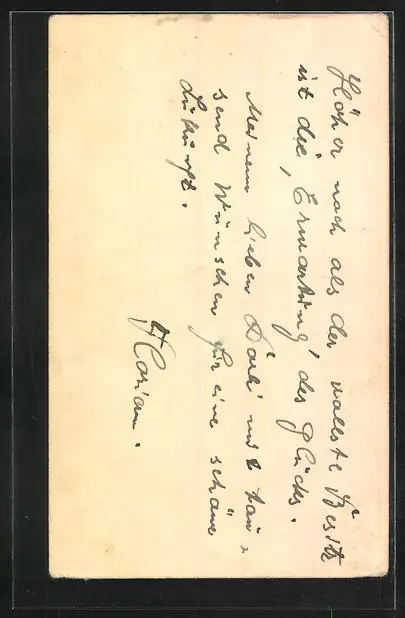 Höher noch als der vollste Besitz
ist die „Erwartung" des Glücks.
Meinem lieben Darli mit tau-
send Wünschen für eine schöne
Zukunft.
Florian.